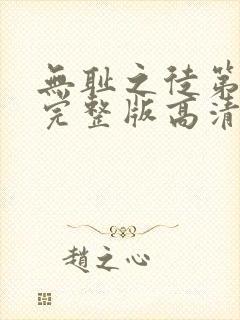 無耻之徒第
完整版高清
趙之心